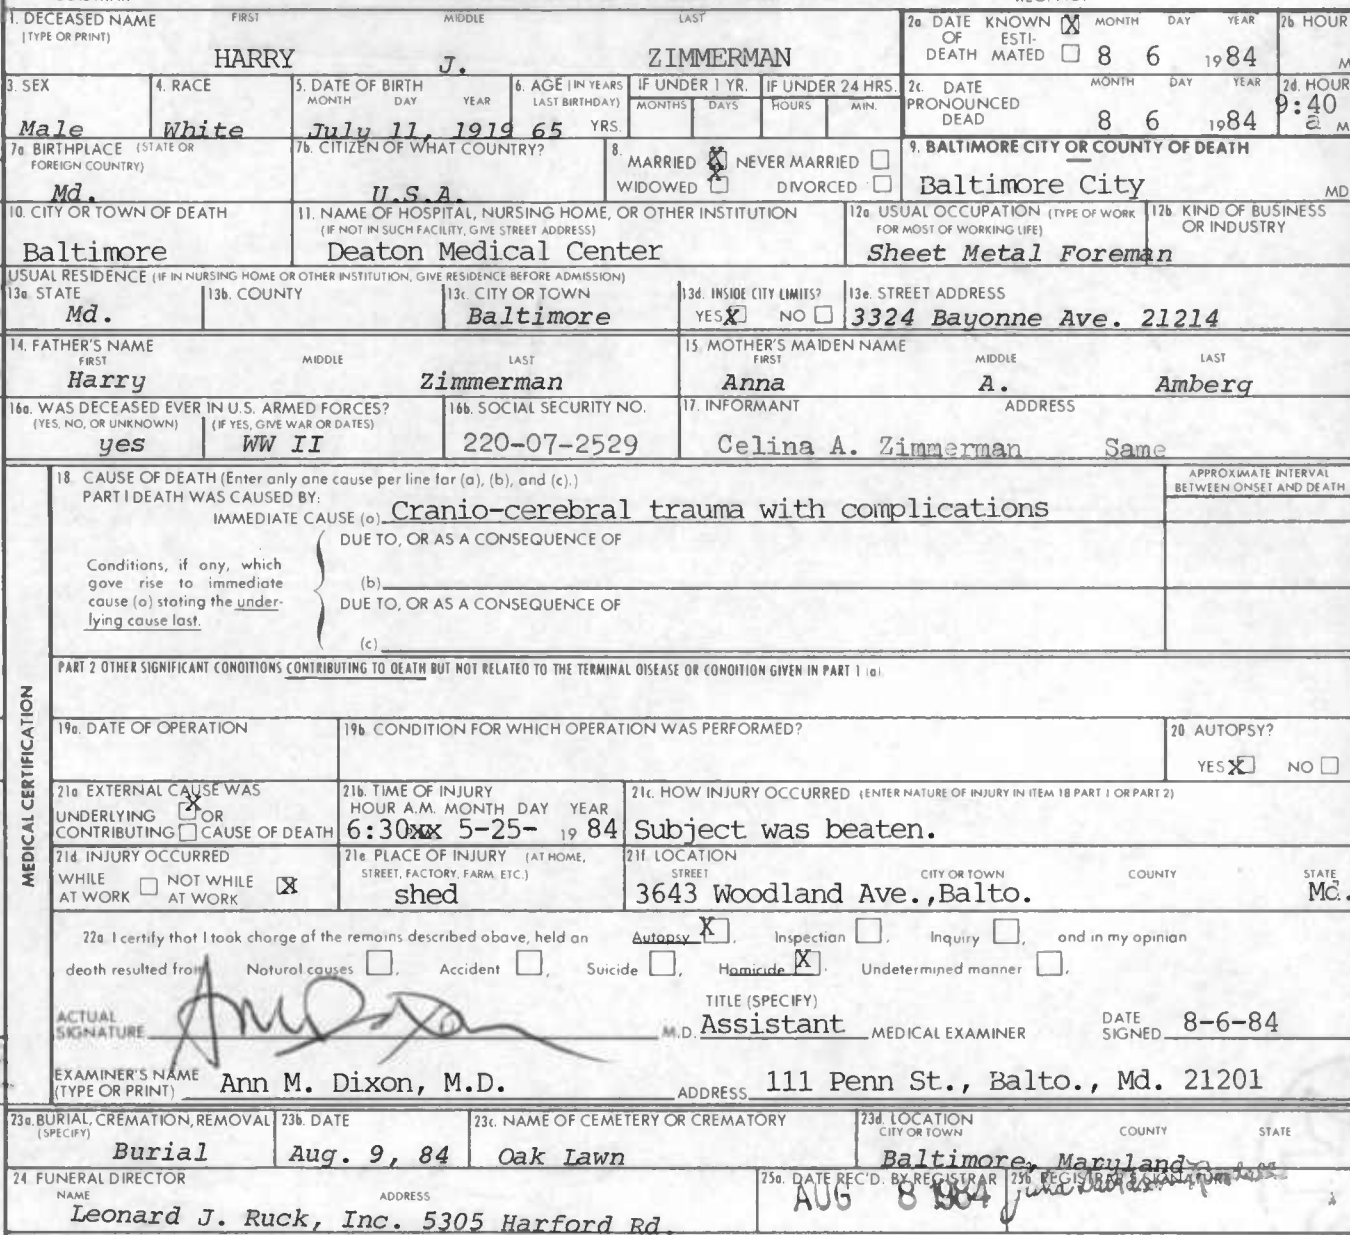 1. DECEASED NAME FIRST MIDDLE LAST
(TYPE OR PRINT)
HARRY J. ZIMMERMAN
2a DATE KNOWN X MONTH DAY YEAR
OF ESTI-
DEATH MATED 8 6 1984
2b HOUR
M
3. SEX
Male
4. RACE
White
5. DATE OF BIRTH
MONTH DAY YEAR
July 11, 1919
6. AGE (IN YEARS
LAST BIRTHDAY)
65 YRS.
IF UNDER 1 YR.
MONTHS DAYS
IF UNDER 24 HRS.
HOURS MIN.
2c. DATE MONTH DAY YEAR
PRONOUNCED
DEAD 8 6 1984
2d. HOUR
9:40
a M
7a BIRTHPLACE (STATE OR
FOREIGN COUNTRY)
Md.
7b. CITIZEN OF WHAT COUNTRY?
U.S.A.
8. MARRIED X NEVER MARRIED
WIDOWED X DIVORCED
9. BALTIMORE CITY OR COUNTY OF DEATH
Baltimore City MD
10. CITY OR TOWN OF DEATH
Baltimore
11. NAME OF HOSPITAL, NURSING HOME, OR OTHER INSTITUTION
(IF NOT IN SUCH FACILITY, GIVE STREET ADDRESS)
Deaton Medical Center
12a USUAL OCCUPATION (TYPE OF WORK
FOR MOST OF WORKING LIFE)
Sheet Metal Foreman
12b. KIND OF BUSINESS
OR INDUSTRY
USUAL RESIDENCE (IF IN NURSING HOME OR OTHER INSTITUTION, GIVE RESIDENCE BEFORE ADMISSION)
13a. STATE
Md.
13b. COUNTY
13c. CITY OR TOWN
Baltimore
13d. INSIDE CITY LIMITS?
YES X NO
13e. STREET ADDRESS
3324 Bayonne Ave. 21214
14. FATHER'S NAME
FIRST MIDDLE LAST
Harry Zimmerman
15. MOTHER'S MAIDEN NAME
FIRST MIDDLE LAST
Anna A. Amberg
16a. WAS DECEASED EVER IN U.S. ARMED FORCES?
(YES, NO, OR UNKNOWN) (IF YES, GIVE WAR OR DATES)
yes WW II
16b. SOCIAL SECURITY NO.
220-07-2529
17. INFORMANT ADDRESS
Celina A. Zimmerman Same
MEDICAL CERTIFICATION
18 CAUSE OF DEATH (Enter only one cause per line for (a), (b), and (c).)
PART I DEATH WAS CAUSED BY:
IMMEDIATE CAUSE (a) Cranio-cerebral trauma with complications
APPROXIMATE INTERVAL
BETWEEN ONSET AND DEATH
DUE TO, OR AS A CONSEQUENCE OF
Conditions, if any, which
gave rise to immediate
cause (a) stating the under-
lying cause last.
(b)
DUE TO, OR AS A CONSEQUENCE OF
(c)
PART 2 OTHER SIGNIFICANT CONDITIONS CONTRIBUTING TO DEATH BUT NOT RELATED TO THE TERMINAL DISEASE OR CONDITION GIVEN IN PART 1 (a)
19a. DATE OF OPERATION
19b CONDITION FOR WHICH OPERATION WAS PERFORMED?
20 AUTOPSY?
YES X NO
21a EXTERNAL CAUSE WAS
UNDERLYING X OR
CONTRIBUTING CAUSE OF DEATH
21b. TIME OF INJURY
HOUR A.M. MONTH DAY YEAR
6:30xx 5-25- 19 84
21c. HOW INJURY OCCURRED (ENTER NATURE OF INJURY IN ITEM 18 PART 1 OR PART 2)
Subject was beaten.
21d INJURY OCCURRED
WHILE NOT WHILE X
AT WORK AT WORK
21e PLACE OF INJURY (AT HOME,
STREET, FACTORY, FARM, ETC.)
shed
21f. LOCATION
STREET CITY OR TOWN COUNTY STATE
3643 Woodland Ave.,Balto. Md.
22a I certify that I took charge of the remains described above, held an Autopsy X, Inspection , Inquiry , and in my opinion
death resulted from Natural causes , Accident , Suicide , Homicide X. Undetermined manner .
ACTUAL
SIGNATURE Ann M Dixon M.D.
TITLE (SPECIFY)
Assistant MEDICAL EXAMINER
DATE
SIGNED 8-6-84
EXAMINER'S NAME
(TYPE OR PRINT) Ann M. Dixon, M.D.
ADDRESS 111 Penn St., Balto., Md. 21201
23a. BURIAL, CREMATION, REMOVAL
(SPECIFY)
Burial
23b. DATE
Aug. 9, 84
23c. NAME OF CEMETERY OR CREMATORY
Oak Lawn
23d. LOCATION
CITY OR TOWN COUNTY STATE
Baltimore, Maryland
24 FUNERAL DIRECTOR
NAME ADDRESS
Leonard J. Ruck, Inc. 5305 Harford Rd.
25a. DATE REC'D. BY REGISTRAR
AUG 8 1984
25b REGISTRAR'S SIGNATURE